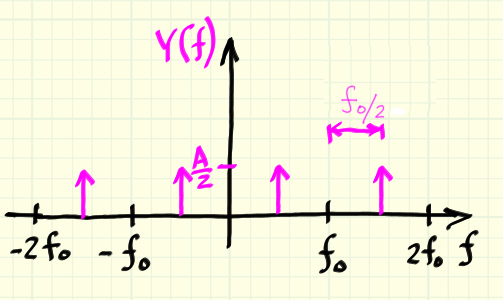 Y(f)
f₀/2
A/2
-2f₀ -f₀ f₀ 2f₀ f